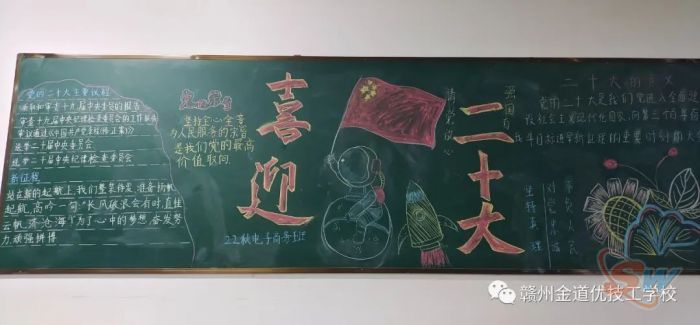 党的二十大主要议程
听取和审查十九届中央委员会的报告
审查十九届中央纪律检查委员会的工作报告
审议通过《中国共产党章程(修正案)》
选举二十届中央委员会
选举二十届中央纪律检查委员会
新征程
站在新的起航上,我们整装待发,准备扬帆
起航,高吟一句"长风破浪会有时,直挂
云帆济沧海",为了心中的梦想,奋发努
力,顽强拼搏
坚持全心全意
为人民服务的宗旨
是我们党的最高
价值取向
喜迎
22秋电子商务
二十大
请党放心
强国有
二十大的意义
党的二十大是我们党进入全面建
设社会主义现代化国家,向第二个百年
斗目标进军新征程的重要时刻
坚持真理
对党忠诚
不负人民
SW
赣州金道优技工学校